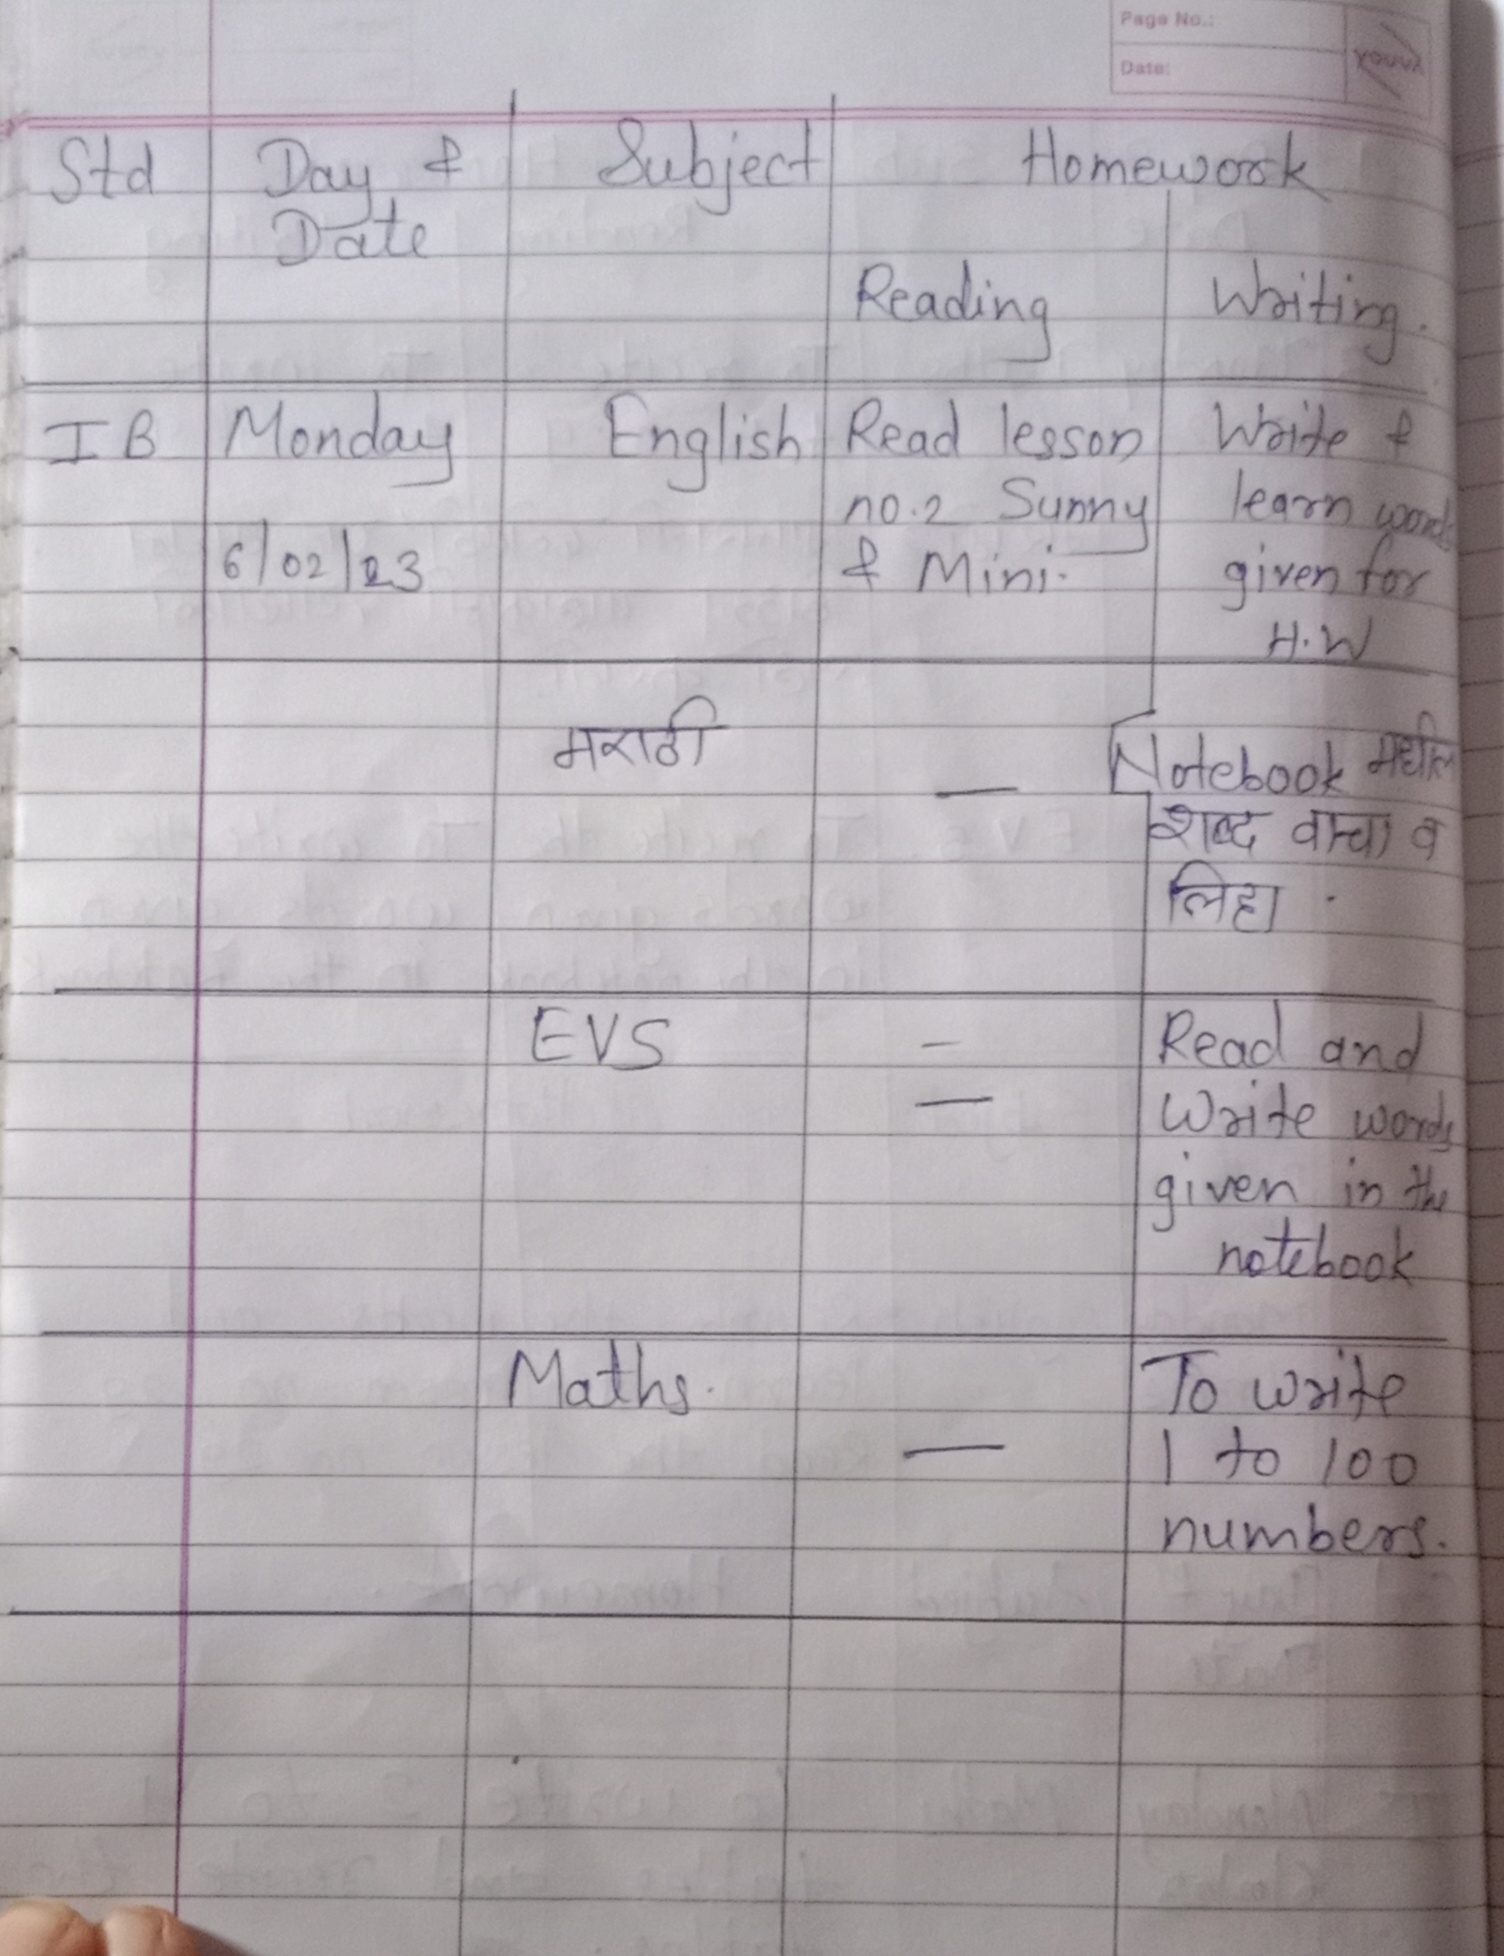 Page No.:
Date:
YOUVA
Std Day & Subject Homework
Date
Reading Writing.
I B Monday English Read lesson Write &
no.2 Sunny learn words
6/02/23 & Mini. given for
H.W
मराठी — Notebook मधील
शब्द वाचा व
लिहा .
EVS – Read and
— Write words
given in the
notebook
Maths. To write
— 1 to 100
numbers.